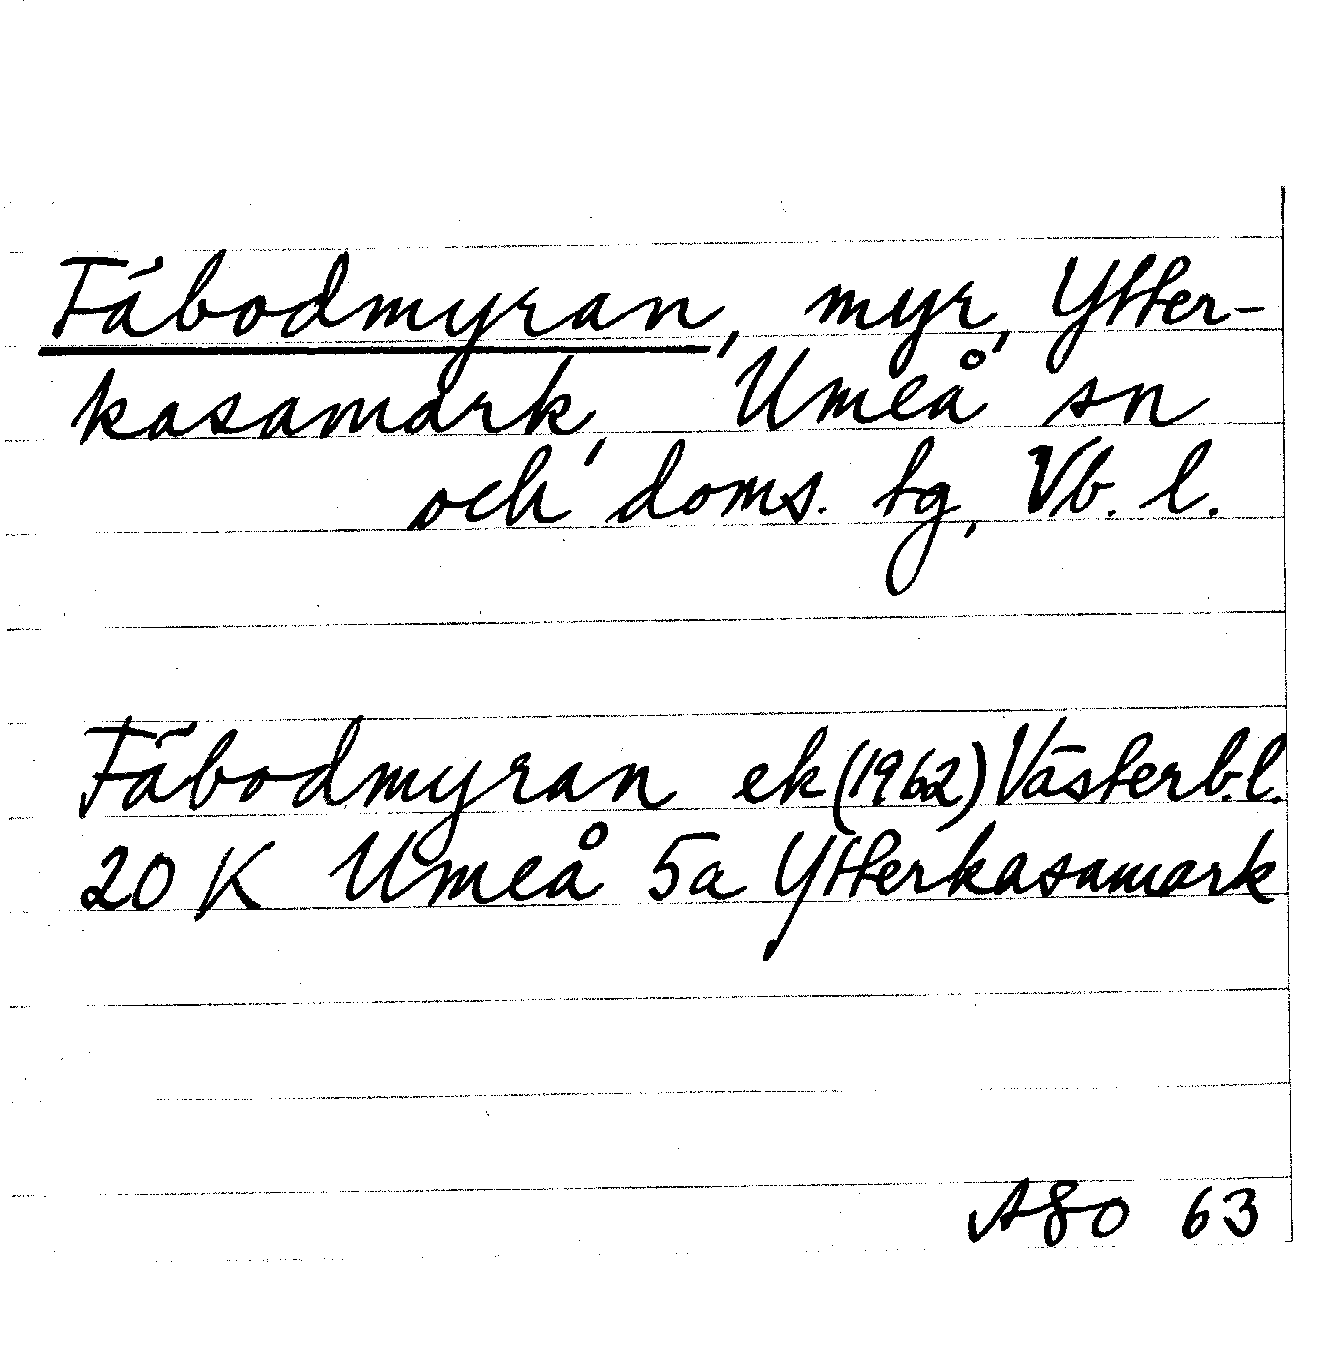 Fäbodmyran, myr, Ytter-
kasamark, Umeå sn
och doms. tg, Vb. l.
Fäbodmyran ek (1962) Västerb.l.
20 K Umeå 5a Ytterkasamark
63